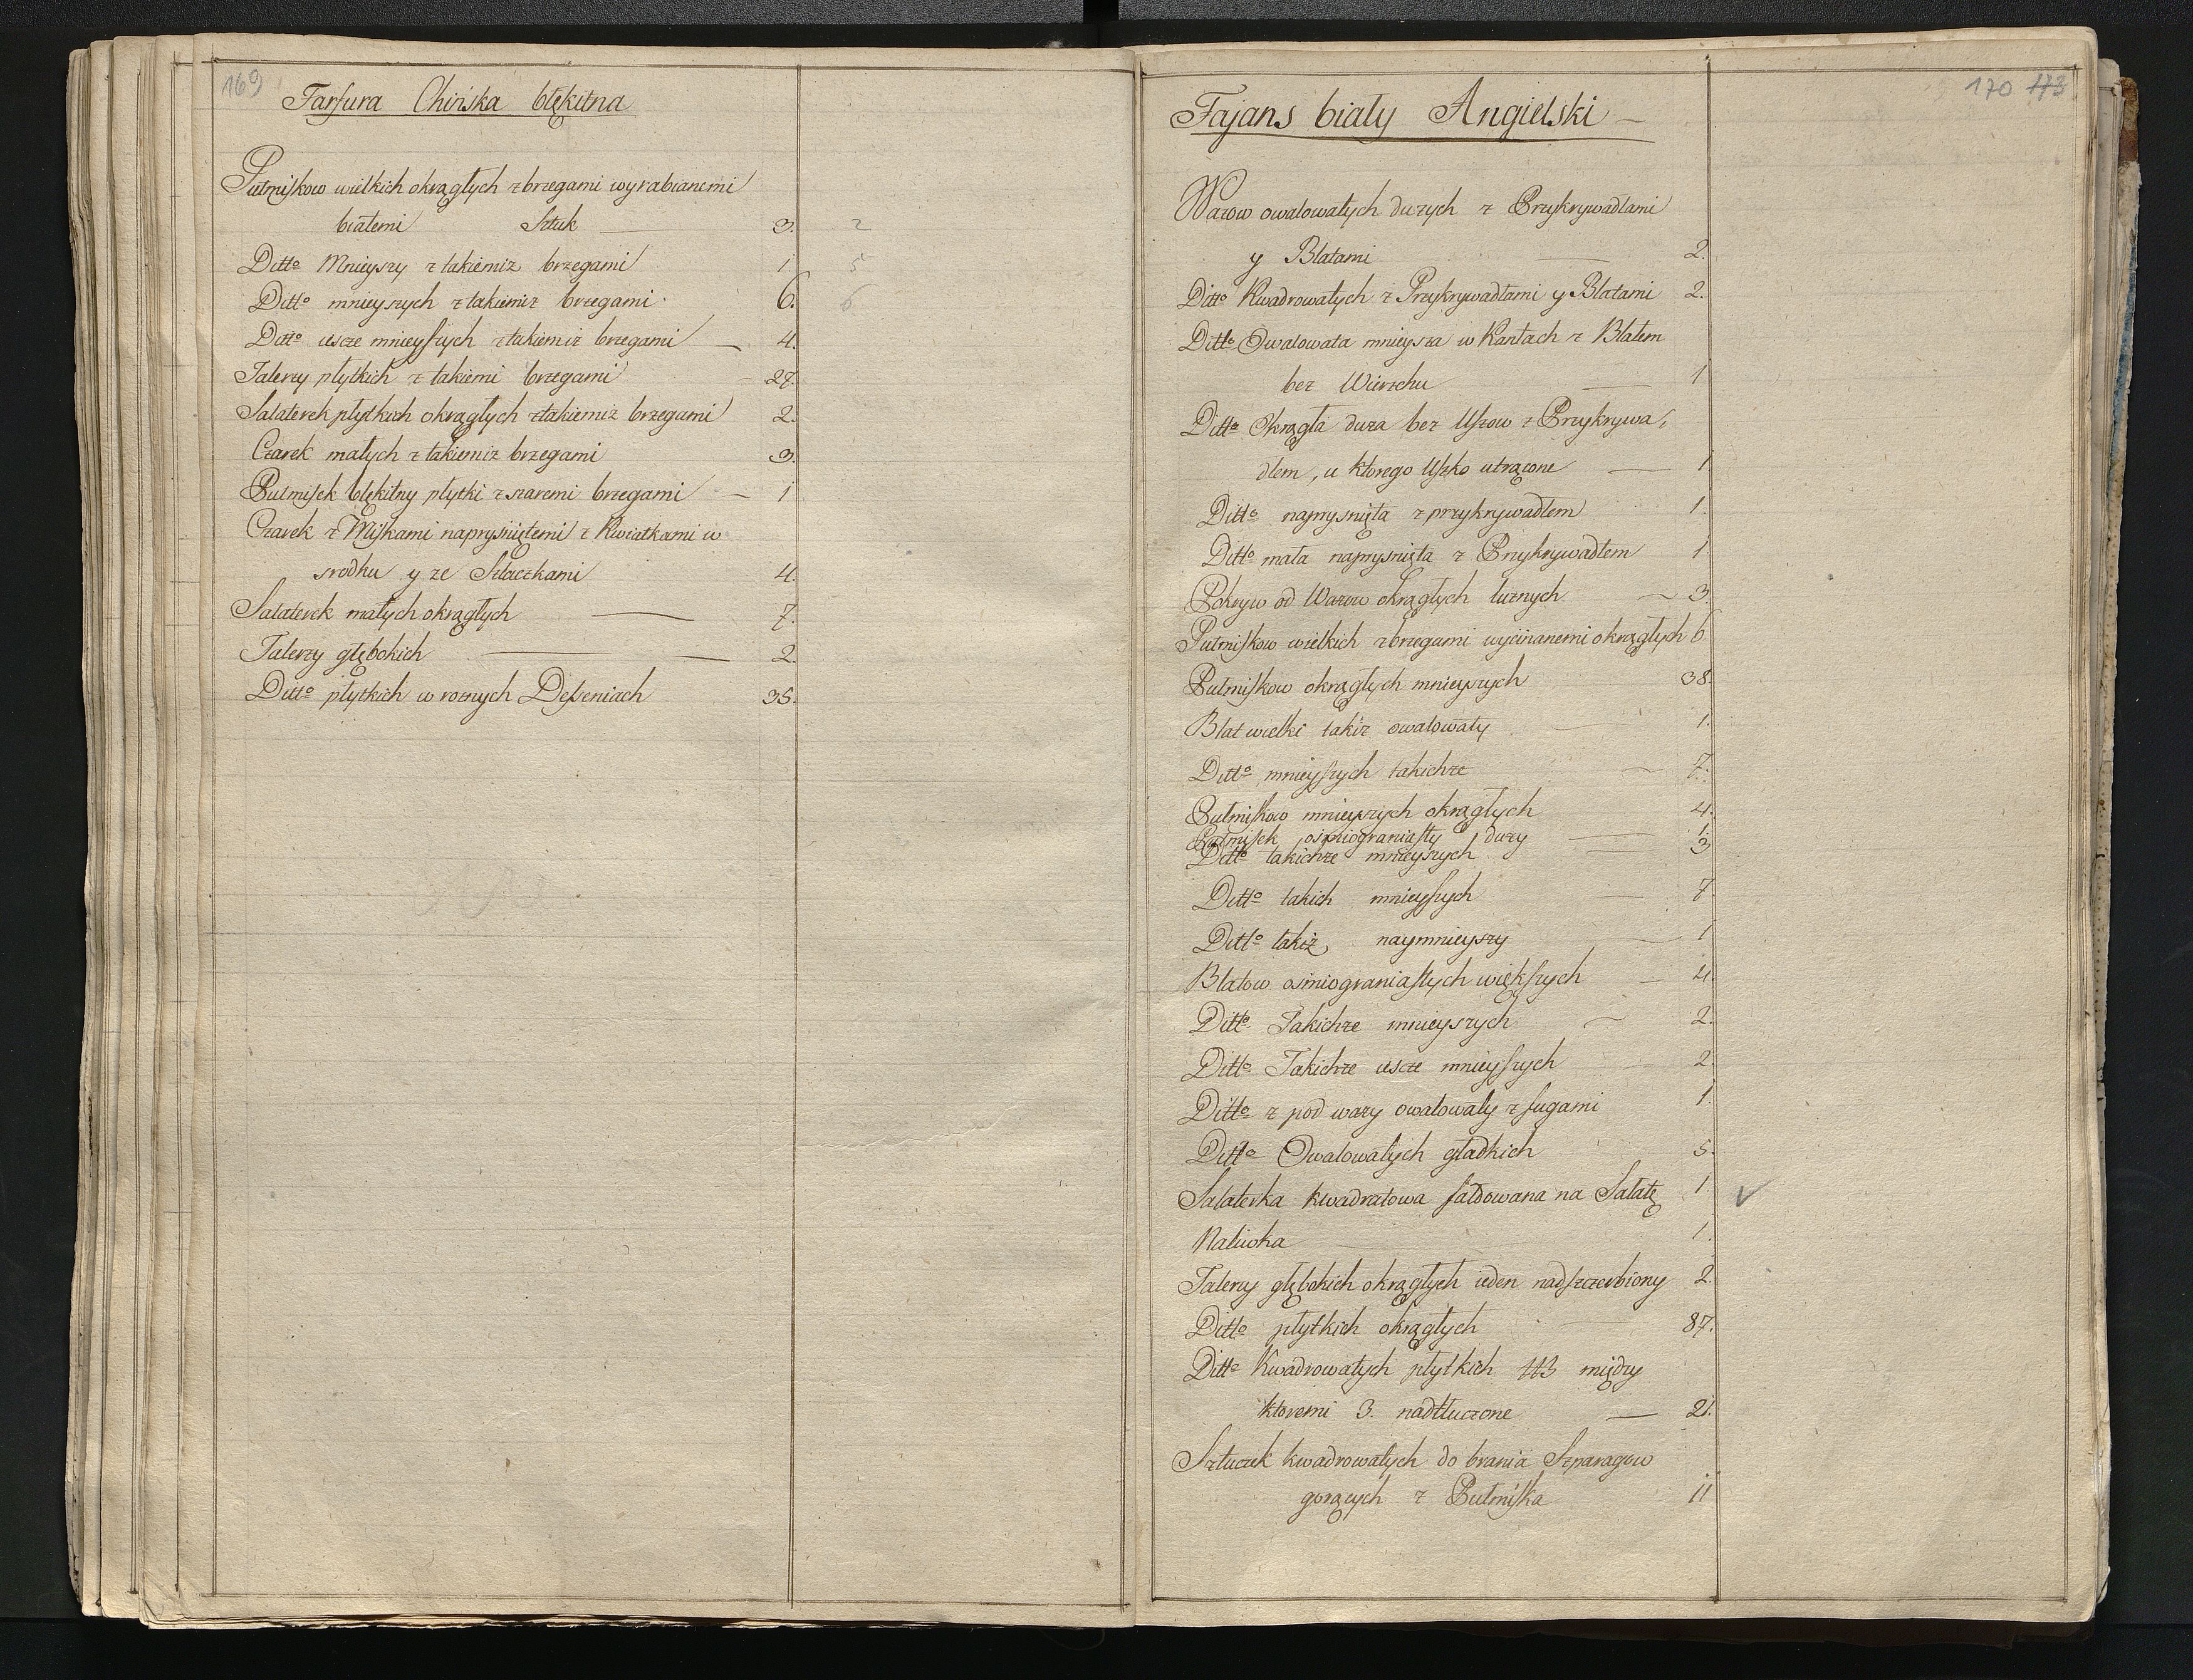 169
Farfura Chińska błękitna
Pułmiskow wielkich okrągłych z brzegami wyrabianemi
białemi Sztuk — 3. 2
Ditto Mnieyszy z takiemiż brzegami 1 5
Ditto mnieyszych z takiemiż brzegami 6. 6
Ditto ieszcze mnieyszych z takiemiż brzegami — 4.
Talerzy płytkich z takiemi brzegami — 27.
Salaterek płytkich okrągłych z takiemiż brzegami 2.
Czarek małych z takiemiż brzegami 3.
Pułmisek błękitny płytki z szaremi brzegami — 1
Czarek z Miskami naprysniętemi z Kwiatkami w
srodku y ze Szlaczkami 4.
Salaterek małych okrągłych — 7.
Talerzy głębokich — 2.
Ditto płytkich w roznych Deseniach 35.
170 113
Fajans biały Angielski —
Wazow owalowatych duzych z Przykrywadłami
y Blatami — 2.
Ditto Kwadrowatych z Przykrywadłami y Blatami 2.
Ditto Owalowata mnieysza w Kantach z Blatem
bez Wierzchu — 1
Ditto Okrągła duza bez Uszow z Przykrywa,
dlem, u ktorego Uszko utrącone — 1
Ditto naprysnięta z przykrywadłem 1.
Ditto mała naprysnięta z Przykrywadłem 1
Pokryw od Wazow okrągłych luznych — 3.
Pułmiskow wielkich z brzegami wycinanemi okrągłych 6
Pułmiskow okrągłych mnieyszych 38.
Blat wielki takiż owalowaty — 1.
Ditto mnieyszych takichże — 7.
Pułmiskow mnieyszych okrągłych 4.
Pułmisek osmiograniasty duzy — 1.
Ditto takichże mnieyszych — 3
Ditto takich mnieyszych — 7
Ditto takiż, naymnieyszy — 1
Blatow osmiograniastych większych — 4.
Ditto Takichże mnieyszych — 2.
Ditto Takichże ieszcze mnieyszych — 2.
Ditto z pod wazy owalowaty z fugami 1.
Ditto Owalowatych gładkich 5.
Salaterka kwadratowa fałdowana na Sałatę 1
Naliwka 1.
Talerzy głębokich okrągłych ieden nadszczerbiony 2.
Ditto płytkich okrągłych — 87.
Ditto Kwadrowatych płytkich 113 między
ktoremi 3. nadtłuczone — 21.
Sztuczek kwadrowatych do brania Szparagow
gorących z Pułmiska 11